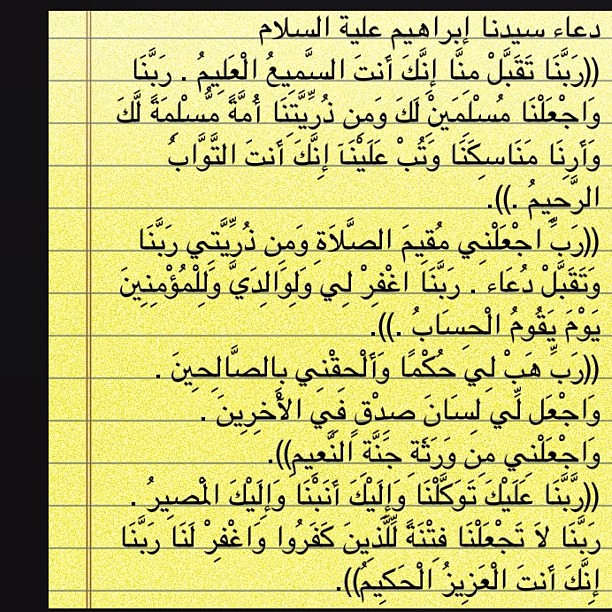 دعاء سيدنا إبراهيم علية السلام
((رَبَّنَا تَقَبَّلْ مِنَّا إِنَّكَ أَنتَ السَّمِيعُ الْعَلِيمُ . رَبَّنَا
وَاجْعَلْنَا مُسْلِمَيْنِ لَكَ وَمِن ذُرِّيَّتِنَا أُمَّةً مُّسْلِمَةً لَّكَ
وَأَرِنَا مَنَاسِكَنَا وَتُبْ عَلَيْنَآ إِنَّكَ أَنتَ التَّوَّابُ
الرَّحِيمُ .)).
((رَبِّ اجْعَلْنِي مُقِيمَ الصَّلاَةِ وَمِن ذُرِّيَّتِي رَبَّنَا
وَتَقَبَّلْ دُعَاء . رَبَّنَا اغْفِرْ لِي وَلِوَالِدَيَّ وَلِلْمُؤْمِنِينَ
يَوْمَ يَقُومُ الْحِسَابُ .)).
((رَبِّ هَبْ لِي حُكْمًا وَأَلْحِقْنِي بِالصَّالِحِينَ .
وَاجْعَل لِّي لِسَانَ صِدْقٍ فِي الْأَخِرِينَ .
وَاجْعَلْنِي مِن وَرَثَةِ جَنَّةِ النَّعِيمِ)).
((رَّبَّنَا عَلَيْكَ تَوَكَّلْنَا وَإِلَيْكَ أَنَبْنَا وَإِلَيْكَ الْمَصِيرُ .
رَبَّنَا لاَ تَجْعَلْنَا فِتْنَةً لِّلَّذِينَ كَفَرُوا وَاغْفِرْ لَنَا رَبَّنَا
إِنَّكَ أَنتَ الْعَزِيزُ الْحَكِيمُ)).